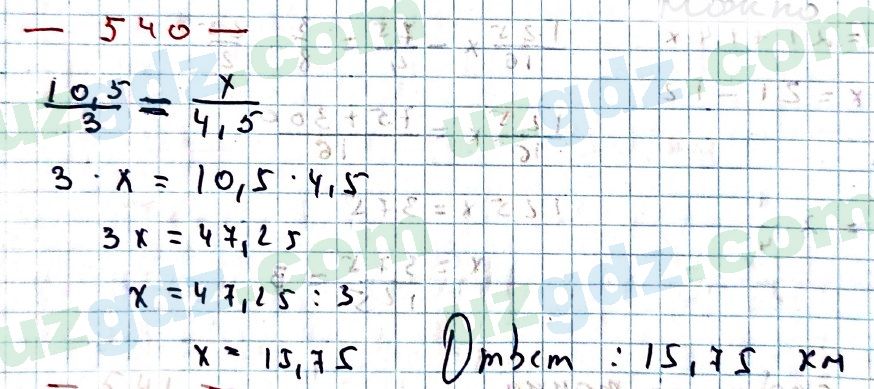 Можно
— 540 —
10,5/3 = x/4,5
3 · x = 10,5 · 4,5
3x = 47,25
x = 47,25 : 3
x = 15,75
Ответ : 15,75 км
— 541 —
uzgdz.com
uzgdz.com
uzgdz.com
uzgdz.com
uzgdz.com
uzgdz.com